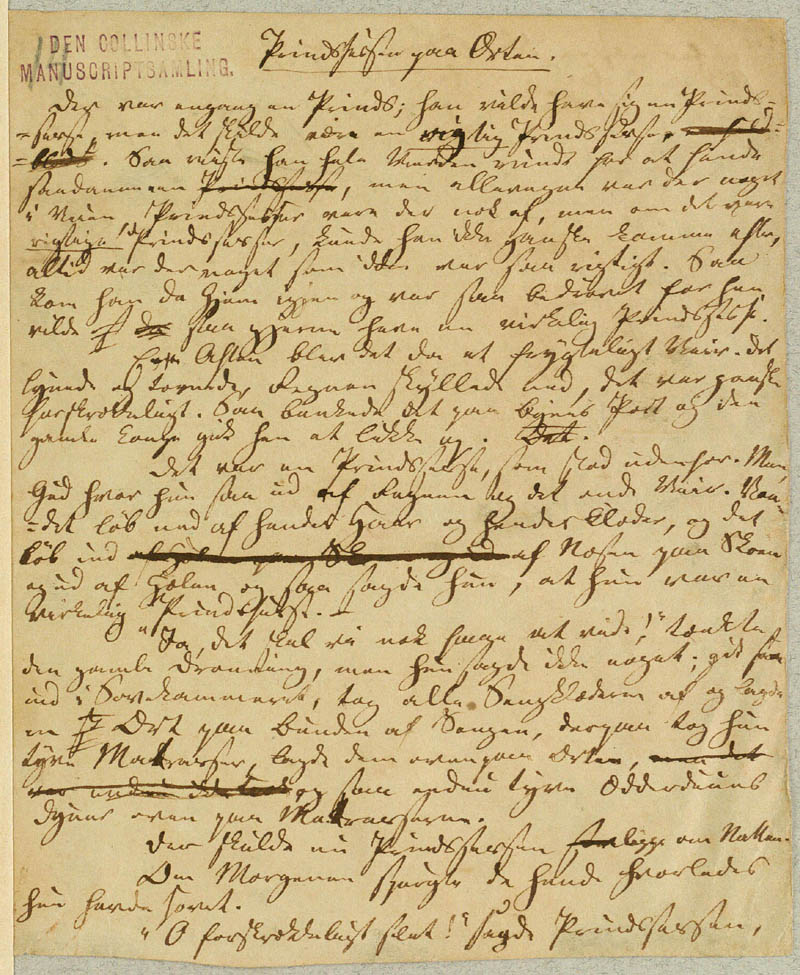 DEN COLLINSKE
MANUSCRIPTSAMLING.
Prindsessen paa Ærten.
Der var engang en Prinds; han vilde have sig en Prinds-
=sesse, men det skulde være en rigtig Prindsesse,
Saa reiste han hele Verden rundt for at finde
saadan een Prindsesse, men allevegne var der noget
i Veien, Prindsesser vare der nok af, men om det vare
rigtige Prindsesser, kunde han ikke ganske komme efter,
altid var der noget som ikke var saa rigtigt. Saa
kom han da hjem igjen og var saa bedrøvet for han
vilde saa gjerne have en virkelig Prindsesse.
En Aften blev det da et frygteligt Veir. det
lynede og tordnede, Regnen skyllede ned, det var ganske
forskrækkeligt. Saa bankede det paa Byens Port og den
gamle Konge gik hen at lukke op. Det.
Det var en Prindsesse, som stod udenfor. Men,
Gud hvor hun saa ud af Regnen og det onde Veir. Van-
=det løb ned af hendes Haar og hendes Klæder, og det
løb ind af Næsen paa Skoen
og ud af Hælen og saa sagde hun, at hun var en
virkelig Prindsesse. -
"Ja, det skal vi nok faae at vide!", tænkte
den gamle Dronning, men hun sagde ikke noget; gik
ind i Sovekammeret, tog alle Sengklæderne af og lagde
en Ært paa Bunden af Sengen, derpaa tog hun
tyve Mattrasser, lagde dem ovenpaa Ærten, men det
var endnu ikke nok og saa endnu tyve Ædderduuns
Dyner oven paa Mattrasserne.
Der skulde nu Prindsessen ligge om Natten.
Om Morgenen spurgte de hende hvorledes
hun havde sovet.
"O forskrækkeligt slet!" sagde Prindsessen,